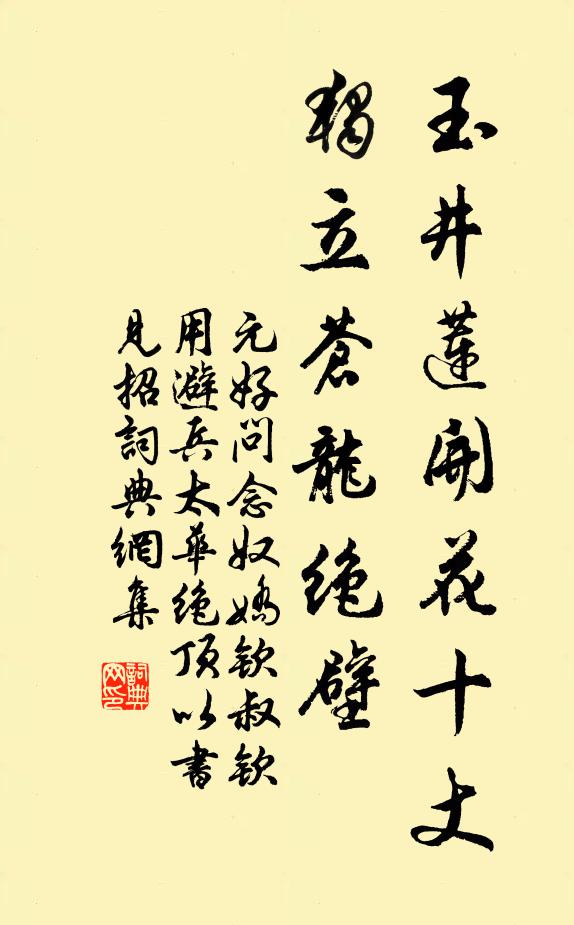 玉井蓮開花十丈
獨立蒼龍絶壁
元好问念奴嬌欽叔欽
用避兵太華绝頂以書
見招詞典網集
詞典网印